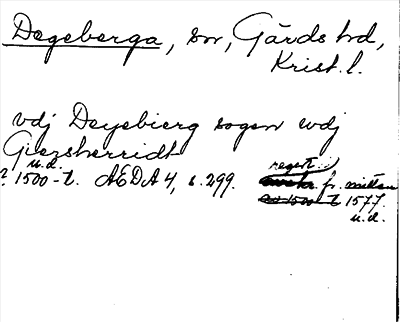 Degeberga, sn, Gärds hd,
Krist. l.
vdj Deyebierg sogen wdj
Giersherridt
u.d.
? 1500-t. AEDA 4, s. 299. regest fr. mitten
1577.
u.d.